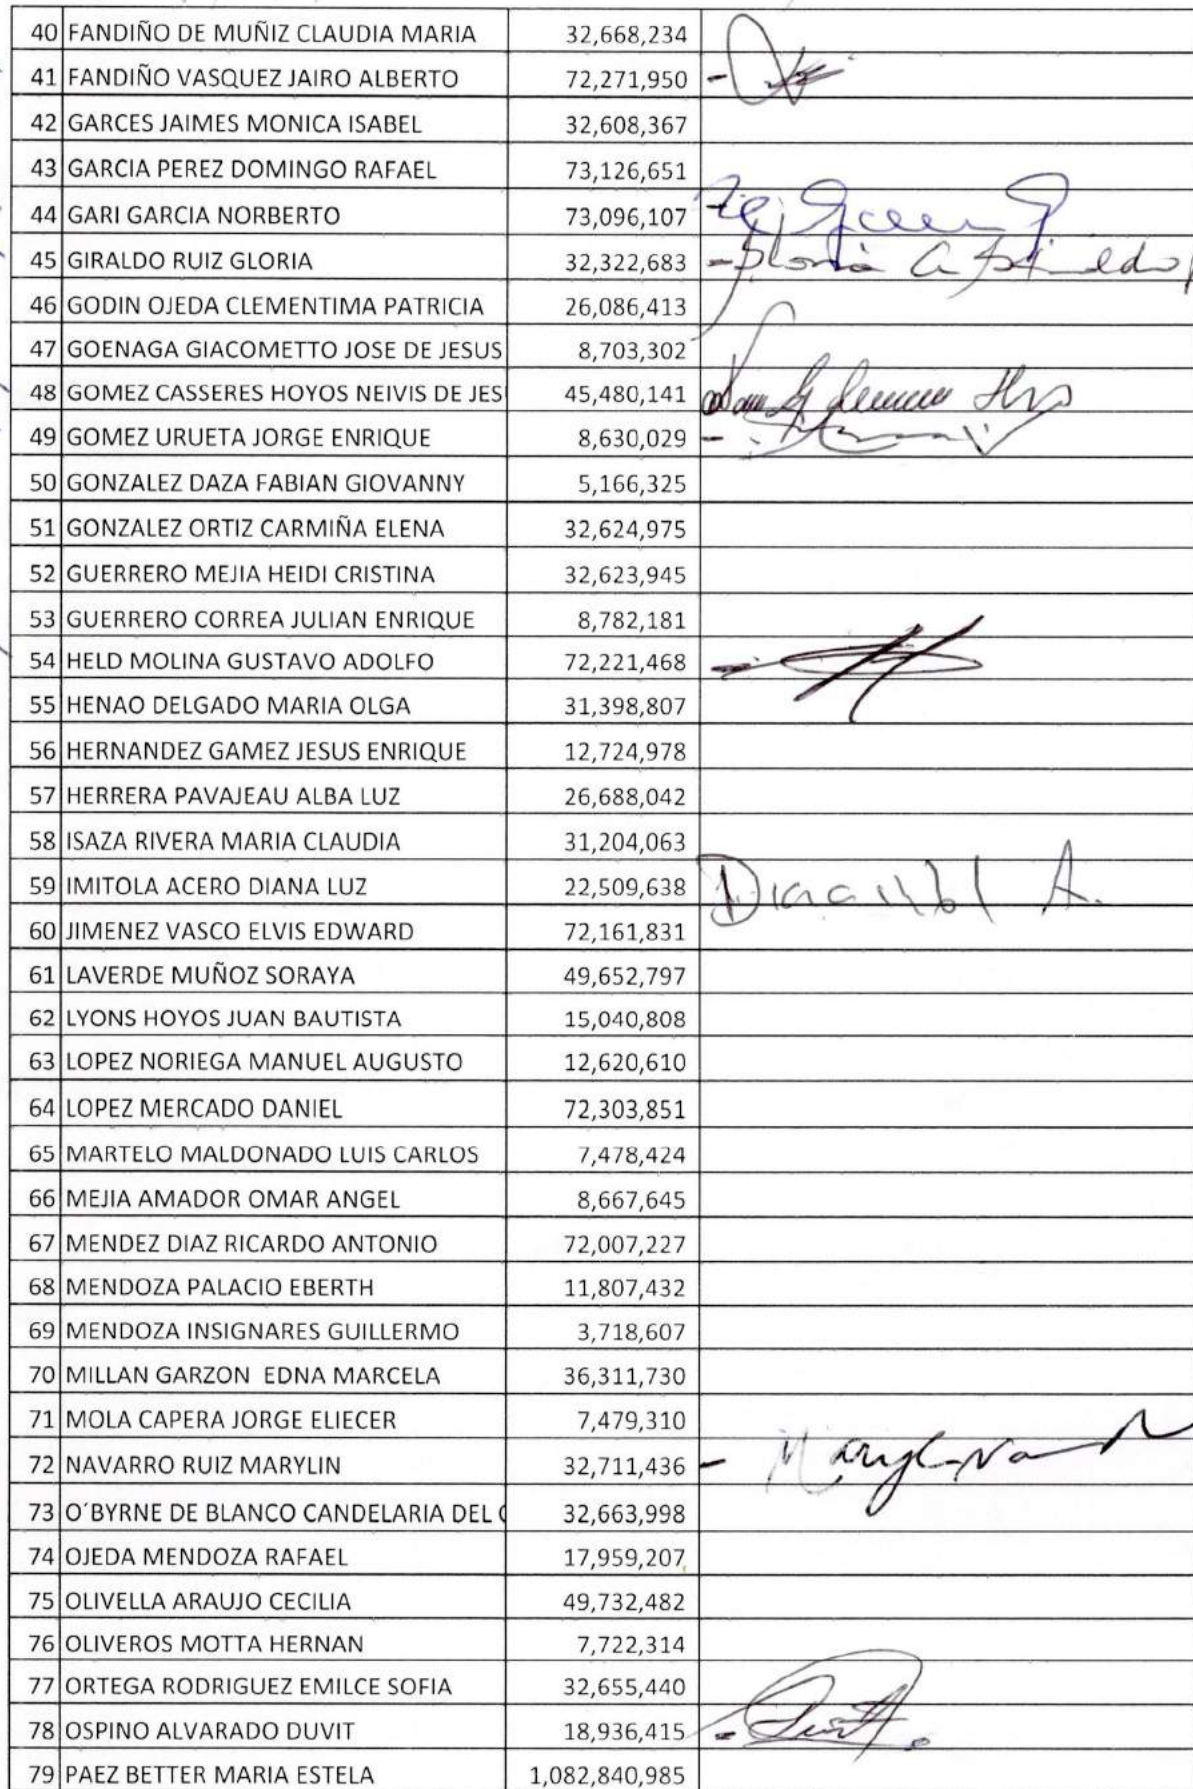 40 FANDIÑO DE MUÑIZ CLAUDIA MARIA 32,668,234
41 FANDIÑO VASQUEZ JAIRO ALBERTO 72,271,950
42 GARCES JAIMES MONICA ISABEL 32,608,367
43 GARCIA PEREZ DOMINGO RAFAEL 73,126,651
44 GARI GARCIA NORBERTO 73,096,107
45 GIRALDO RUIZ GLORIA 32,322,683
46 GODIN OJEDA CLEMENTIMA PATRICIA 26,086,413
47 GOENAGA GIACOMETTO JOSE DE JESUS 8,703,302
48 GOMEZ CASSERES HOYOS NEIVIS DE JES 45,480,141
49 GOMEZ URUETA JORGE ENRIQUE 8,630,029
50 GONZALEZ DAZA FABIAN GIOVANNY 5,166,325
51 GONZALEZ ORTIZ CARMIÑA ELENA 32,624,975
52 GUERRERO MEJIA HEIDI CRISTINA 32,623,945
53 GUERRERO CORREA JULIAN ENRIQUE 8,782,181
54 HELD MOLINA GUSTAVO ADOLFO 72,221,468
55 HENAO DELGADO MARIA OLGA 31,398,807
56 HERNANDEZ GAMEZ JESUS ENRIQUE 12,724,978
57 HERRERA PAVAJEAU ALBA LUZ 26,688,042
58 ISAZA RIVERA MARIA CLAUDIA 31,204,063
59 IMITOLA ACERO DIANA LUZ 22,509,638 Diana A.
60 JIMENEZ VASCO ELVIS EDWARD 72,161,831
61 LAVERDE MUÑOZ SORAYA 49,652,797
62 LYONS HOYOS JUAN BAUTISTA 15,040,808
63 LOPEZ NORIEGA MANUEL AUGUSTO 12,620,610
64 LOPEZ MERCADO DANIEL 72,303,851
65 MARTELO MALDONADO LUIS CARLOS 7,478,424
66 MEJIA AMADOR OMAR ANGEL 8,667,645
67 MENDEZ DIAZ RICARDO ANTONIO 72,007,227
68 MENDOZA PALACIO EBERTH 11,807,432
69 MENDOZA INSIGNARES GUILLERMO 3,718,607
70 MILLAN GARZON EDNA MARCELA 36,311,730
71 MOLA CAPERA JORGE ELIECER 7,479,310
72 NAVARRO RUIZ MARYLIN 32,711,436
73 O´BYRNE DE BLANCO CANDELARIA DEL 32,663,998
74 OJEDA MENDOZA RAFAEL 17,959,207
75 OLIVELLA ARAUJO CECILIA 49,732,482
76 OLIVEROS MOTTA HERNAN 7,722,314
77 ORTEGA RODRIGUEZ EMILCE SOFIA 32,655,440
78 OSPINO ALVARADO DUVIT 18,936,415
79 PAEZ BETTER MARIA ESTELA 1,082,840,985